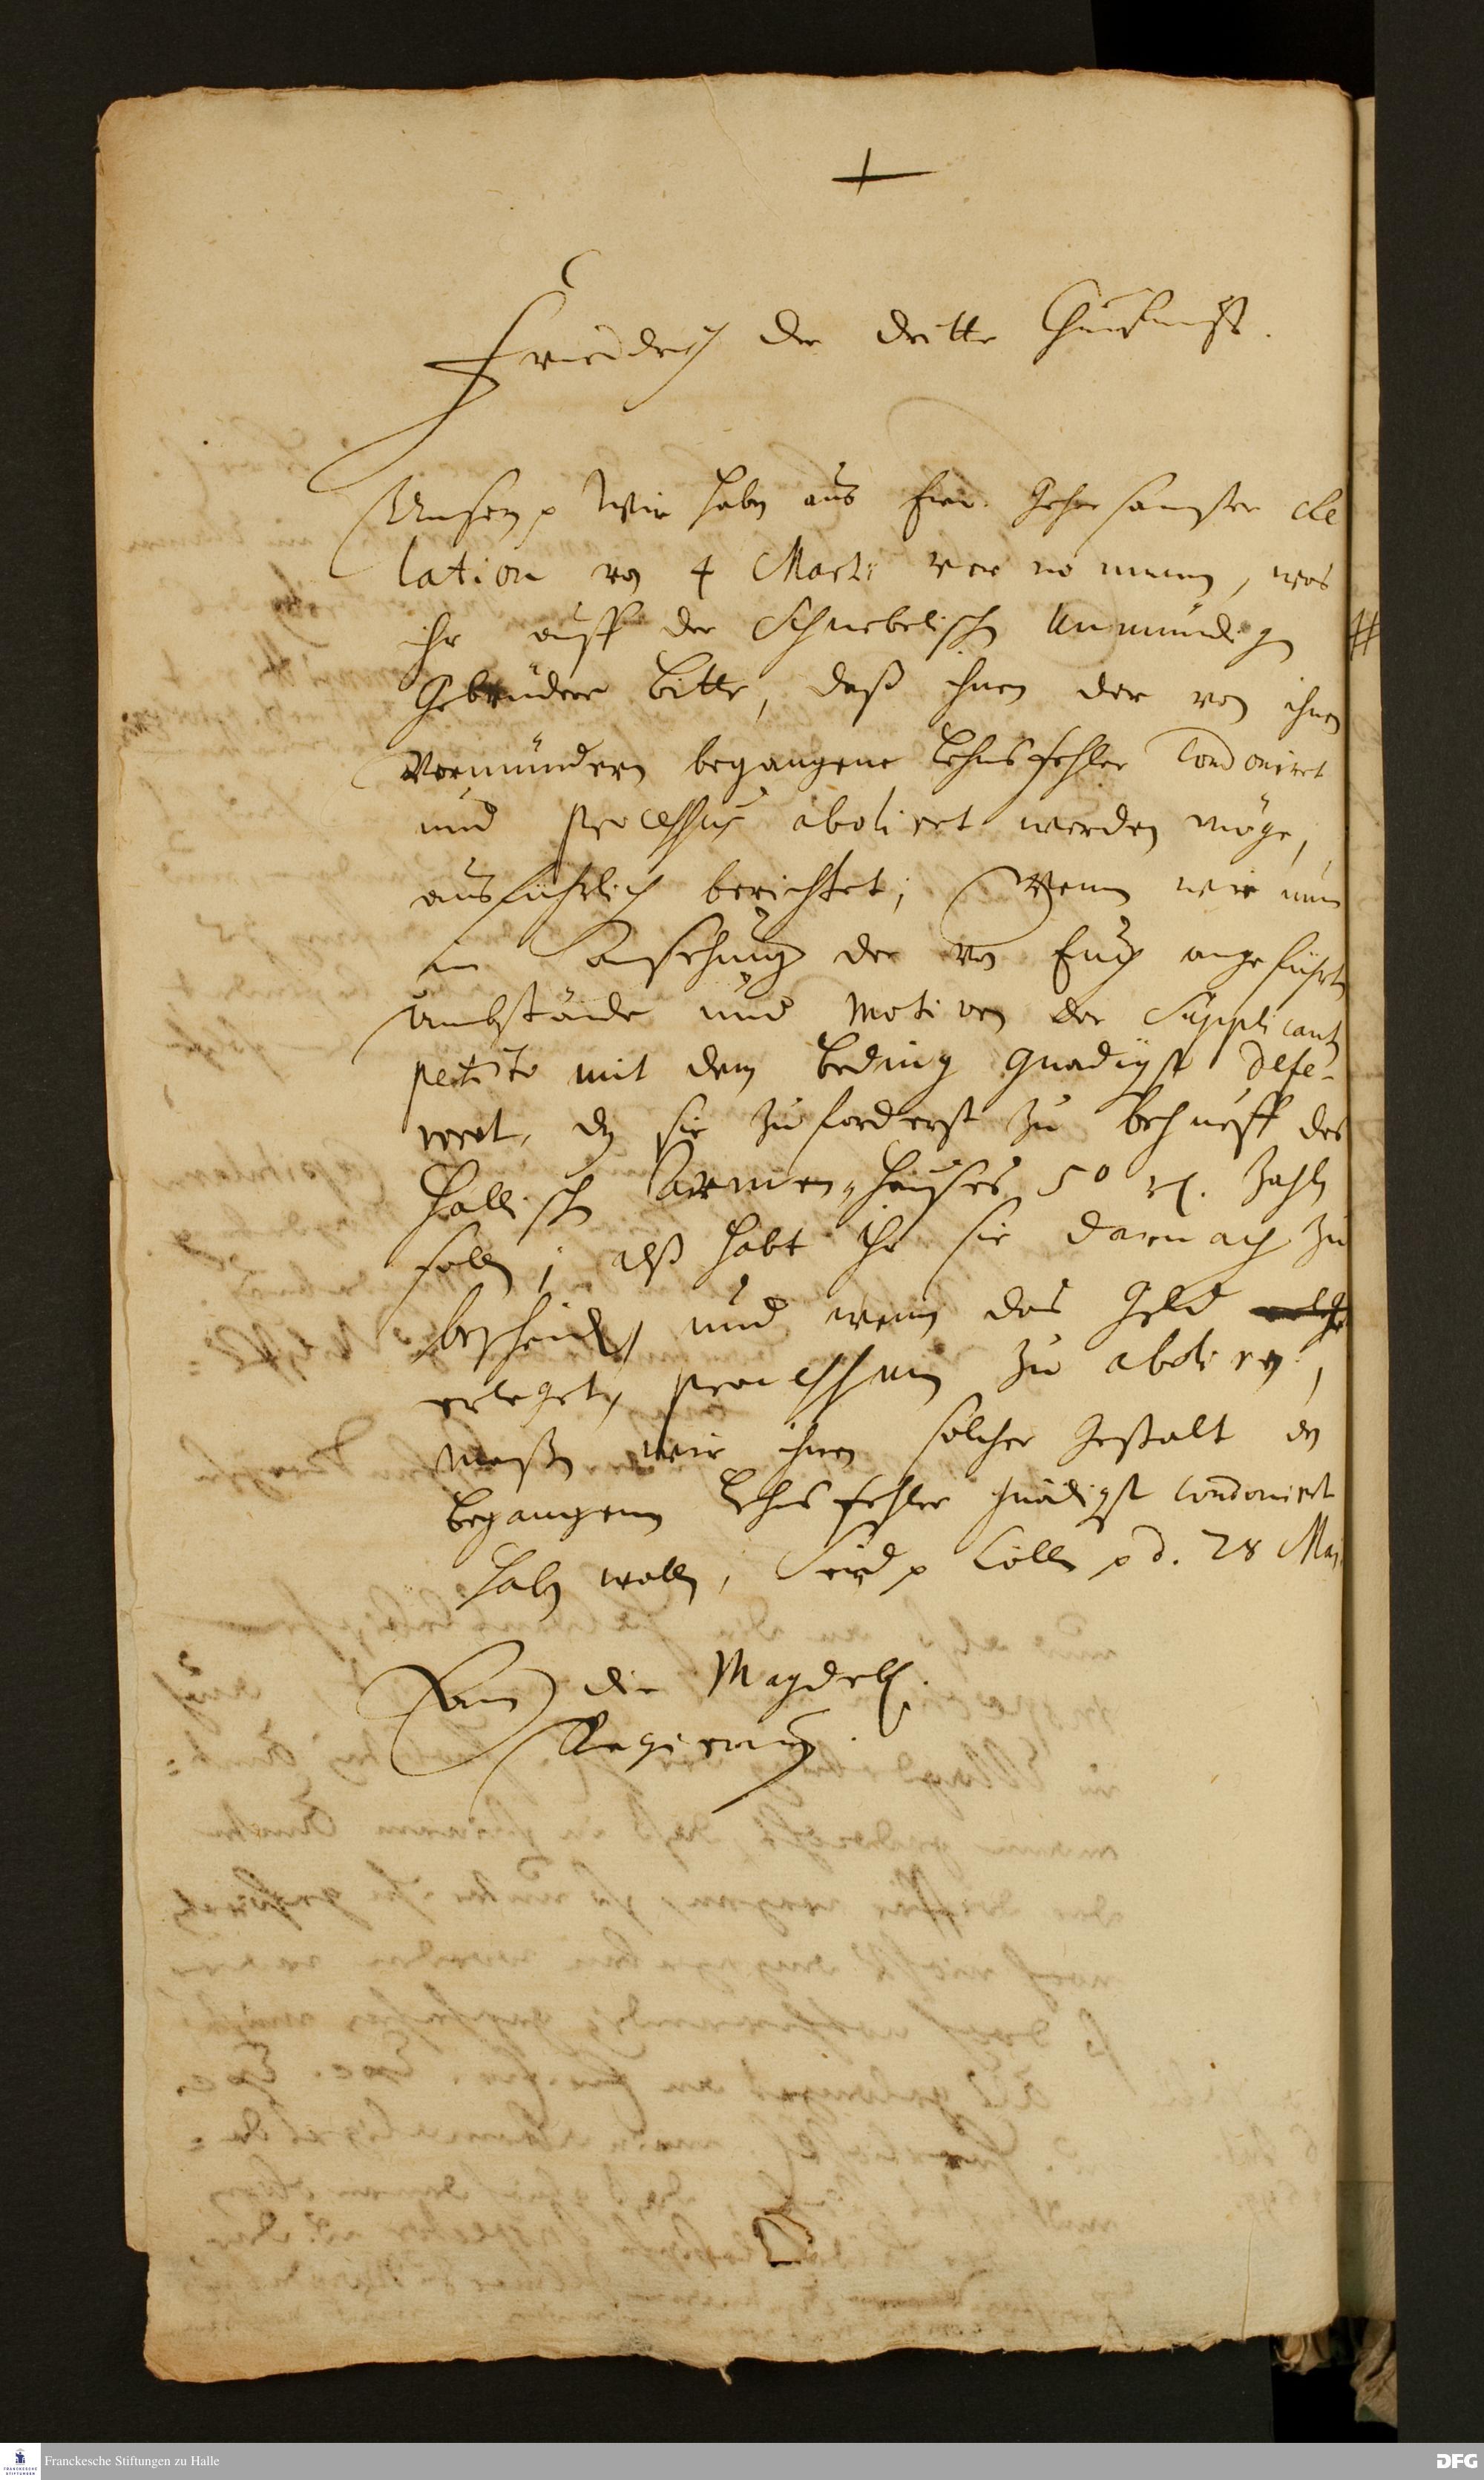 Friedrich der dritte Churfürst.
Unsern p Wir haben aus Eur gehorsambster Re
lation von 4 Martii vernommen, was
ihr auff der Schnebelischen Unmündigen
Gebrüdere bitte, daß ihnen der von ihren
Vormündern begangene Lehnsfehler condoniret
und Processus aboliret werden möge,
ausführlich berichtet; Wenn wir nun
in Ansehung der von Euch angeführten
Umbstände und Motiven der Supplicanten
petito mit dem beding gnädigst defe-
riret, dz sie zuforderst zu behueff des
Hallischen Armen-Hauses 50 rth. zahlen
sollen; alß habt ihr sie darnach zu
bescheiden, und wenn das Geld
erleget, processum zu aboliren,
maßen wir ihnen solcher gestalt den
begangenen Lehnsfehler gnädigst condoniret
haben wollen, Seind p Cölln p d. 28 Maj
An die Magdeb.
Regierung.
Franckesche Stiftungen zu Halle
DFG